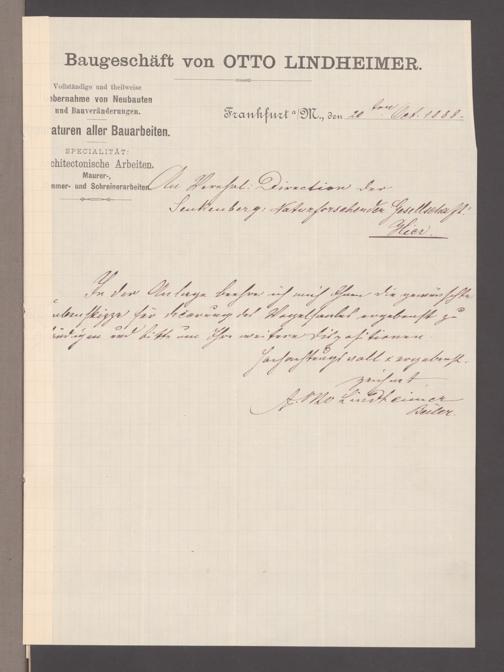 Baugeschäft von OTTO LINDHEIMER.
Vollständige und theilweise
bernahme von Neubauten
und Bauveränderungen.
aturen aller Bauarbeiten.
SPECIALITÄT:
chitectonische Arbeiten.
Maurer-,
mmer- und Schreinerarbeiten.
Frankfurt a/M., den 20ten Oct. 1888.
An Verehrl. Direction der
Senkenberg. Naturforschenden Gesellschaft.
Hier.
In der Anlage beehre ich mich Ihnen die gewünschte
für des ergebenst zu
und bitte um Ihre weitere Dispositionen.
Hochachtungsvoll & ergebenst.
zeichnet
Otto Lindheimer